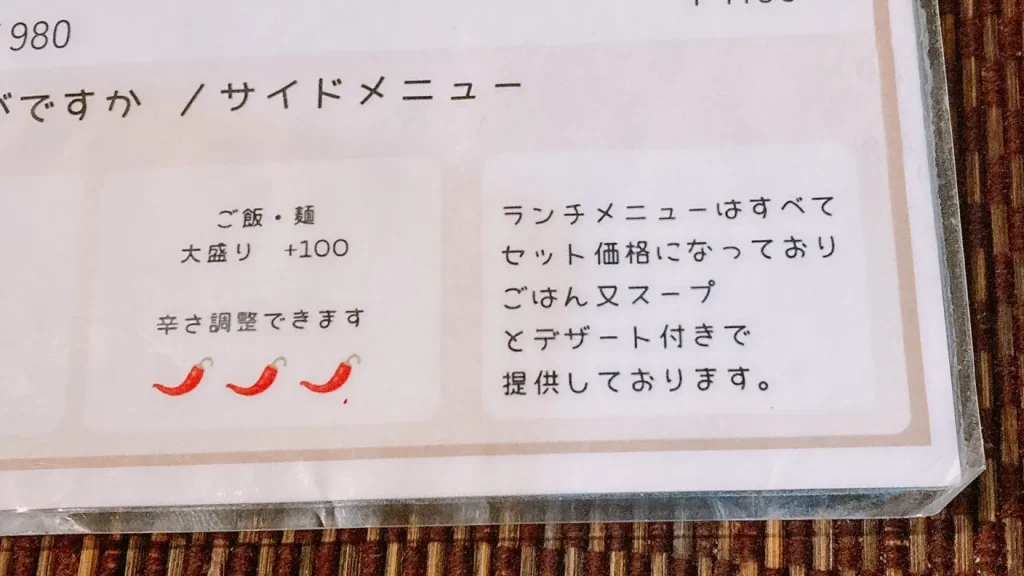 980
ですか / サイドメニュー
ご飯・麺
大盛り +100
辛さ調整できます
ランチメニューはすべて
セット価格になっており
ごはん又スープ
とデザート付きで
提供しております。